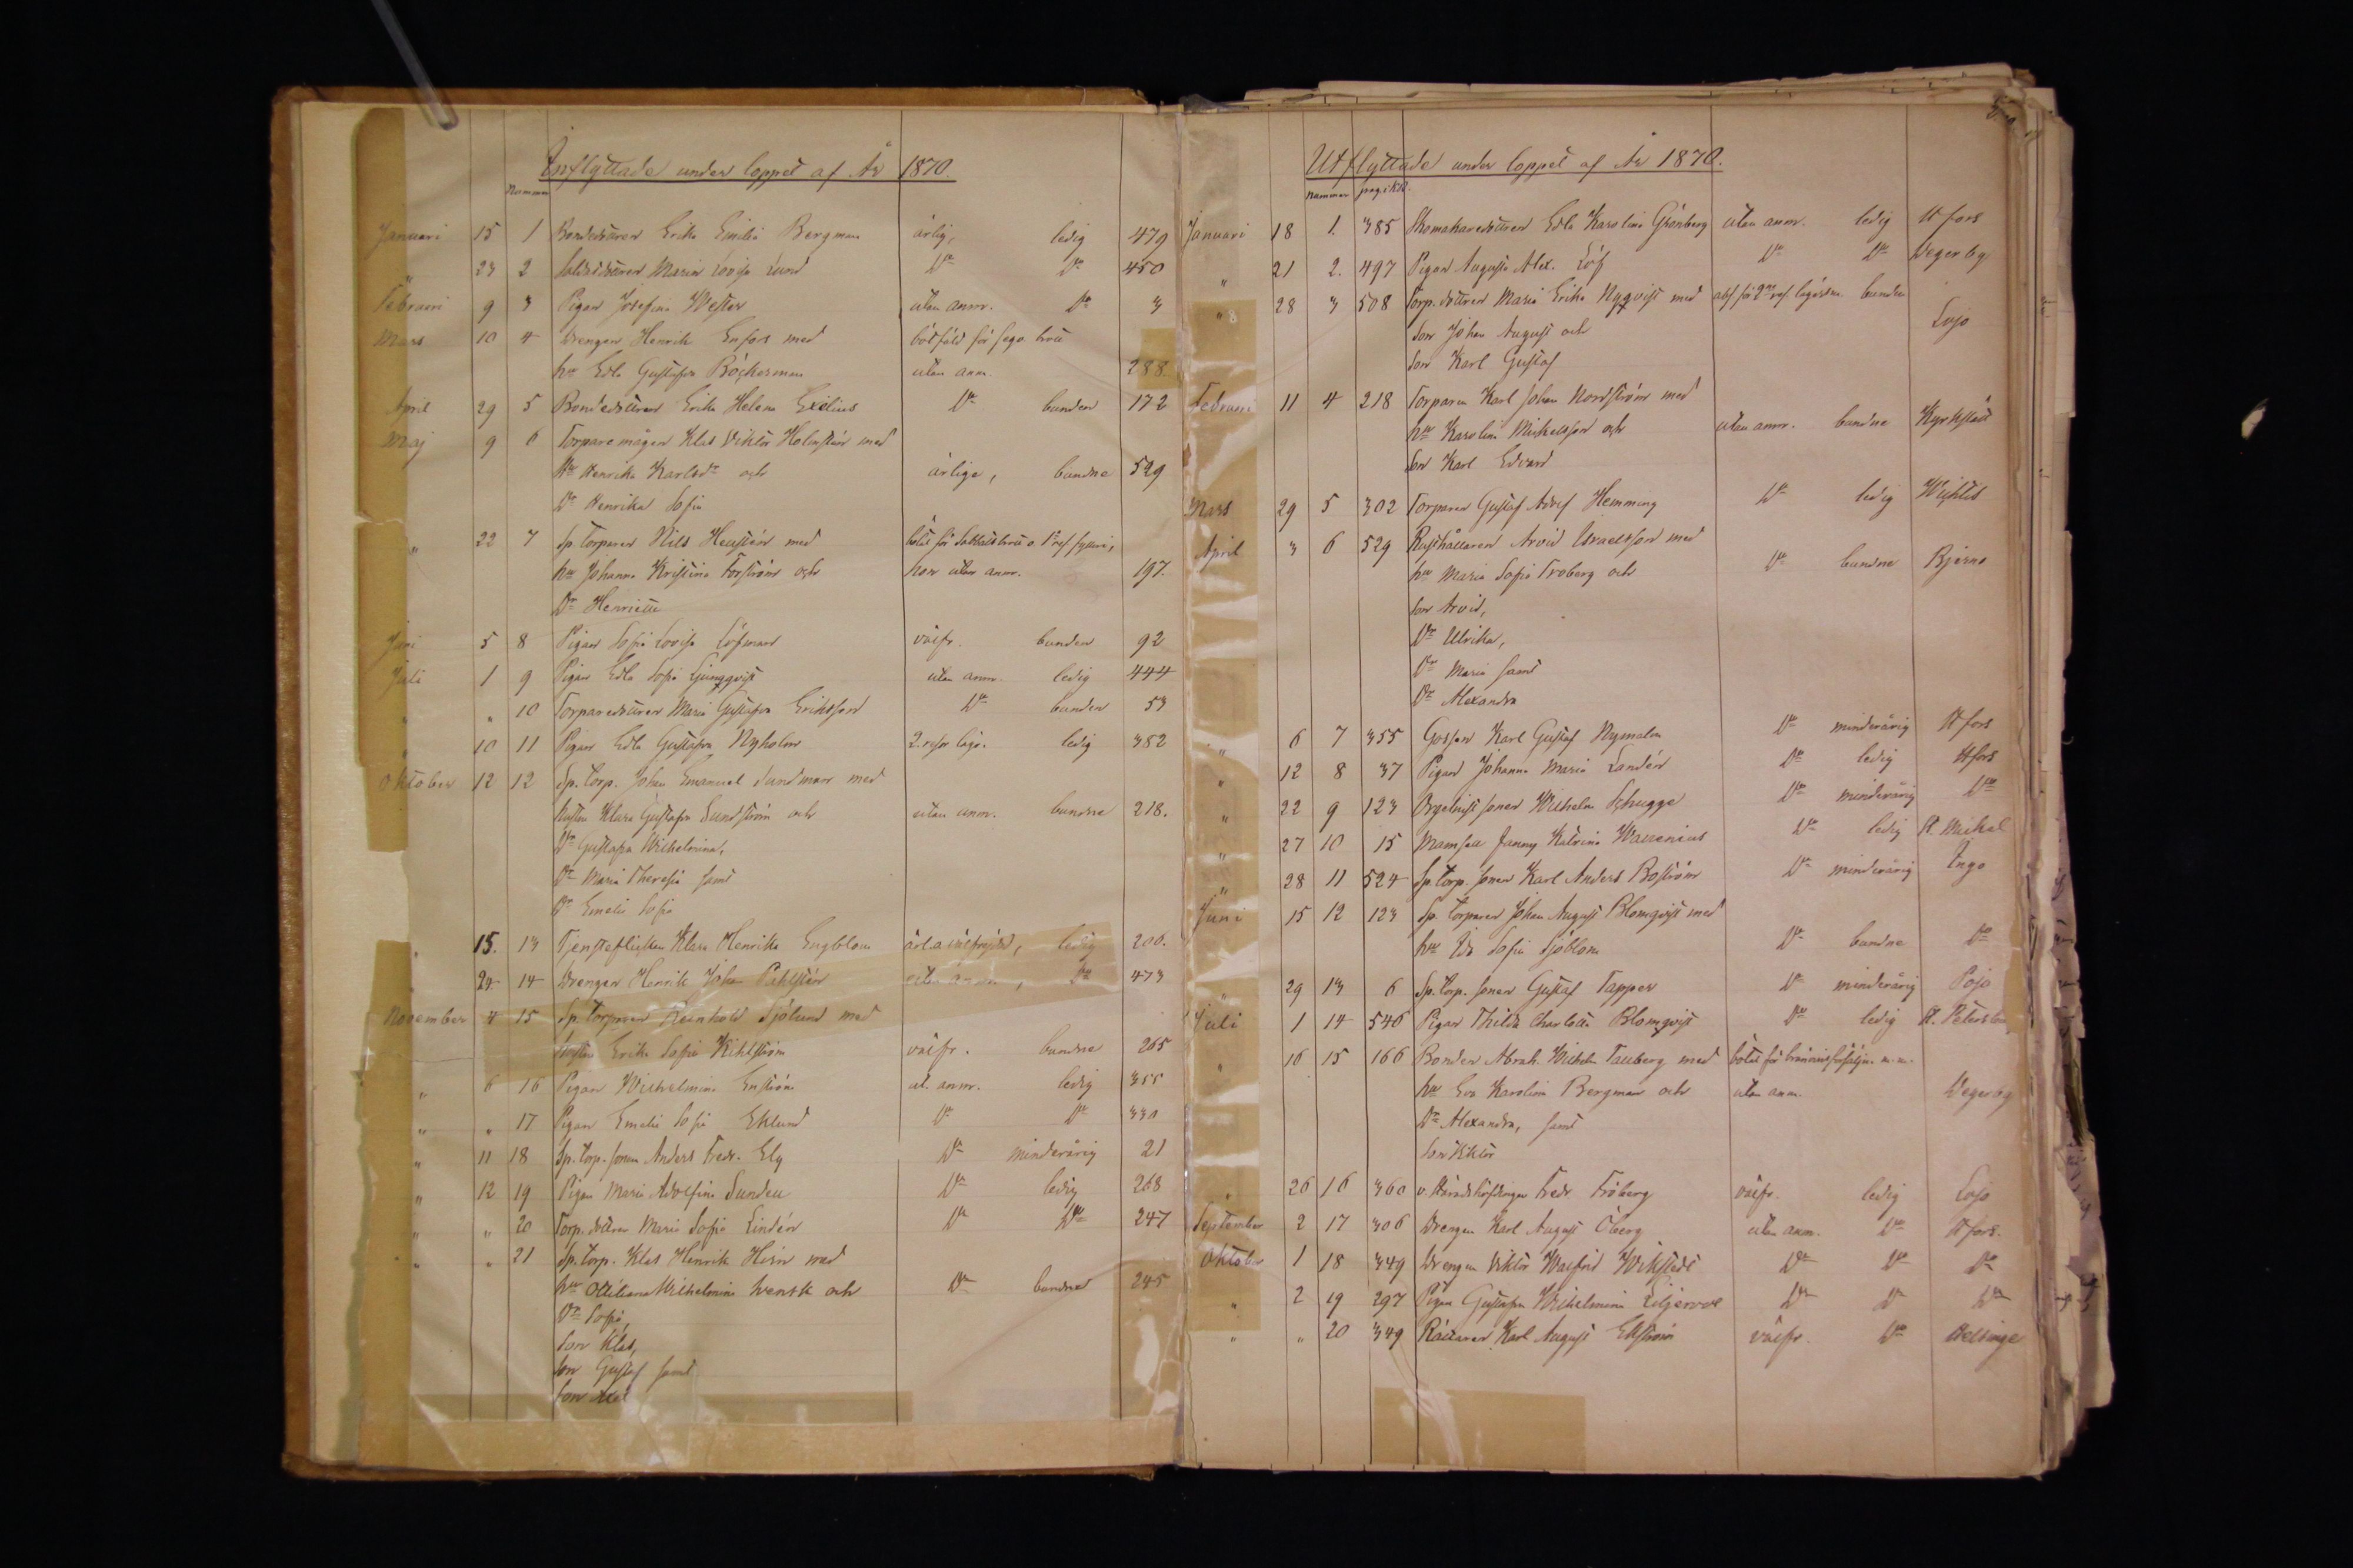 Inflyttade under loppet af År 1870.
Nummer
Januari 15 1 Bondedottren Erika Emilia Bergman ärlig, ledig 479
" 23 2 Soldatdottren Maria Lovisa Lund Do Do 450
Februari 9 3 Pigan Josefina Wester utan anm. Do 3
Mars 10 4 Drengen Henrik Enfors med bötfäld för
hu Edla Gustafva Böckerman utan anm. 288.
April 29 5 Bondedottren Erika Helena Exelius Do bunden 172
Maj 9 6 Torparemågen Klas Viktor Holmstén med
hu Henrika Karlsdr och ärlige, bundne 529
Dr Henrika Sofia
" 22 7 Sp. torparen Nils Heustén med bötat för Sabbatsbrott o 1a res. fylleri,
hu Johanna Kristina Forström och hon utan anm. 197.
Dr Henriette
Juni 5 8 Pigan Sofia Lovisa Löfman välfr. bunden 92
Juli 1 9 Pigan Edla Sofia Ljungqvist utan anm. ledig 444
" " 10 Torparedottren Maria Gustafva Eriksson Do bunden 53
" 10 11 Pigan Edla Gustafva Nyholm 2. resor läge. ledig 382
Oktober 12 12 Sp. torp. Johan Emanuel Sundman med
hustru Klara Gustafva Sundström och utan anm. bundne 218.
Dr Gustafva Wilhelmina,
Dr Maria Theresia samt
Dr Emelie Sofia
" 15. 13 Tjensteflickan Klara Henrika Engblom ärl. o välfrejdad, ledig 206.
24 14 Drengen Henrik Johan Pihlstén utan anm, Do 473
November 4 15 Sp. torparen Reinhold Sjölund med
hustru Erika Sofia Kihlström välfr. bundne 265
" 6 16 Pigan Wilhelmina Enström ut. anm. ledig 355
" " 17 Pigan Emelie Sofia Eklund Do Do 330
" 11 18 Sp. torp. sonen Anders Fredr. Elg Do minderårig 21
" 12 19 Pigan Maria Adolfina Sundell Do ledig 268
" " 20 Torp. dottren Maria Sofia Lindén Do Do 247
" " 21 Sp. torp. Klas Henrik Hirn med
hu Ottiliana Wilhelmina Svensk och Do bundne 245
Dr Sofia,
Son Klas,
Son Gustaf samt
Son Axel
Utflyttade under loppet af År 1870.
Nummer pag. i KB.
Januari 18 1. 385 Skomakaredottren Edla Karolina Grönberg utan anm. ledig H fors
" 21 2. 497 Pigan Augusta Alex. Löf Do Do Degerby
" 28 3 508 Torp. dottren Maria Erika Nyqvist med bunden
Son Johan August och Lojo
Son Karl Gustaf
Februari 11 4 218 Torparen Karl Johan Nordström med
hu Karolina Mickelsson och utan anm. bundne Kyrkslätt
Son Karl Edvard
Mars 29 5 302 Torparen Gustaf Adolf Hemming Do ledig Wichtis
April 3 6 529 Rusthållaren Arvid Israelsson med
hu Maria Sofia Froberg och Do bundne Bjerno
Son Arvid,
Dr Ulrika,
Dr Maria samt
Dr Alexandra
" 6 7 355 Gossen Karl Gustaf Nymalm Do minderårig H fors
" 12 8 37 Pigan Johanna Maria Landén Do ledig H fors
" 22 9 123 Orgelnist sonen Wilhelm Schugge Do minderårig Do
" 27 10 15 Mamsell Fanny Katrina Wallenius Do ledig St. Michel
" 28 11 524 Sp. torp. sonen Karl Anders Boström Do minderårig Ingo
Juni 15 12 123 Sp. torparen Johan August Blomqvist med
hu Ida Sofia Sjöblom Do bundne Do
" 29 13 6 Sp. torp. sonen Gustaf Tapper Do minderårig Pojo
Juli 1 14 546 Pigan Thilda Charlotta Blomqvist Do ledig St. Petersburg
" 16 15 166 Bonden Abrah. Wilhelm Tallberg med bötat för bränvinsförsäljn. m. m.
hu Eva Karolina Bergman och utan anm. Degerby
Dr Alexandra, samt
Son Viktor
" 26 16 360 v. Häradshöfdingen Fredr. Fröberg välfr. ledig Lojo
September 2 17 306 Drengen Karl August Öberg utan anm. Do H fors.
Oktober 1 18 349 Drengen Viktor Walfrid Wikstedt Do Do Do
" 2 19 297 Pigan Gustafva Wilhelmina Liljeroos Do Do Do
" " 20 349 Rättaren Karl August Ekström välfr. Do Helsinge